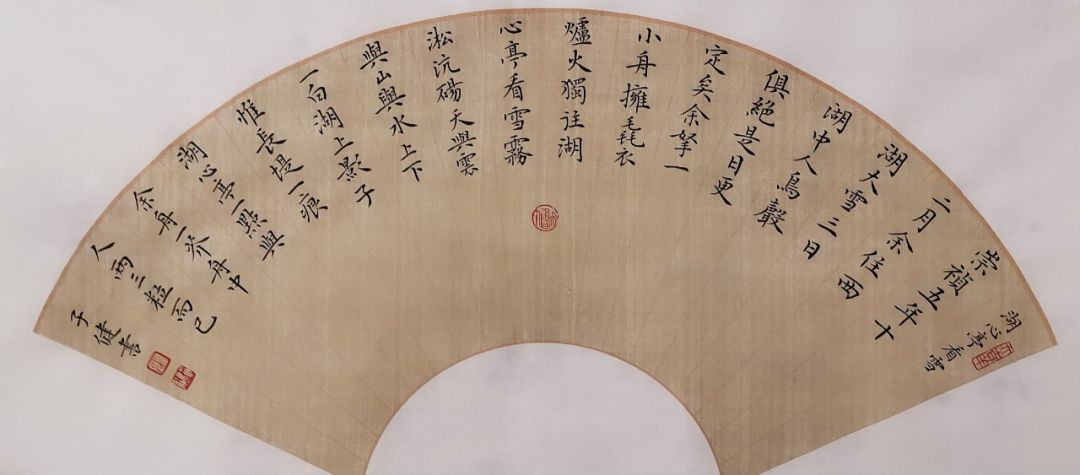 湖心亭看雪
崇禎五年十
二月余住西
湖大雪三日
湖中人鳥聲
俱絕是日更
定矣余拏一
小舟擁毳衣
爐火獨往湖
心亭看雪霧
淞沆碭天與雲
與山與水上下
一白湖上影子
惟長堤一痕
湖心亭一點與
余舟一芥舟中
人兩三粒而已
子健書